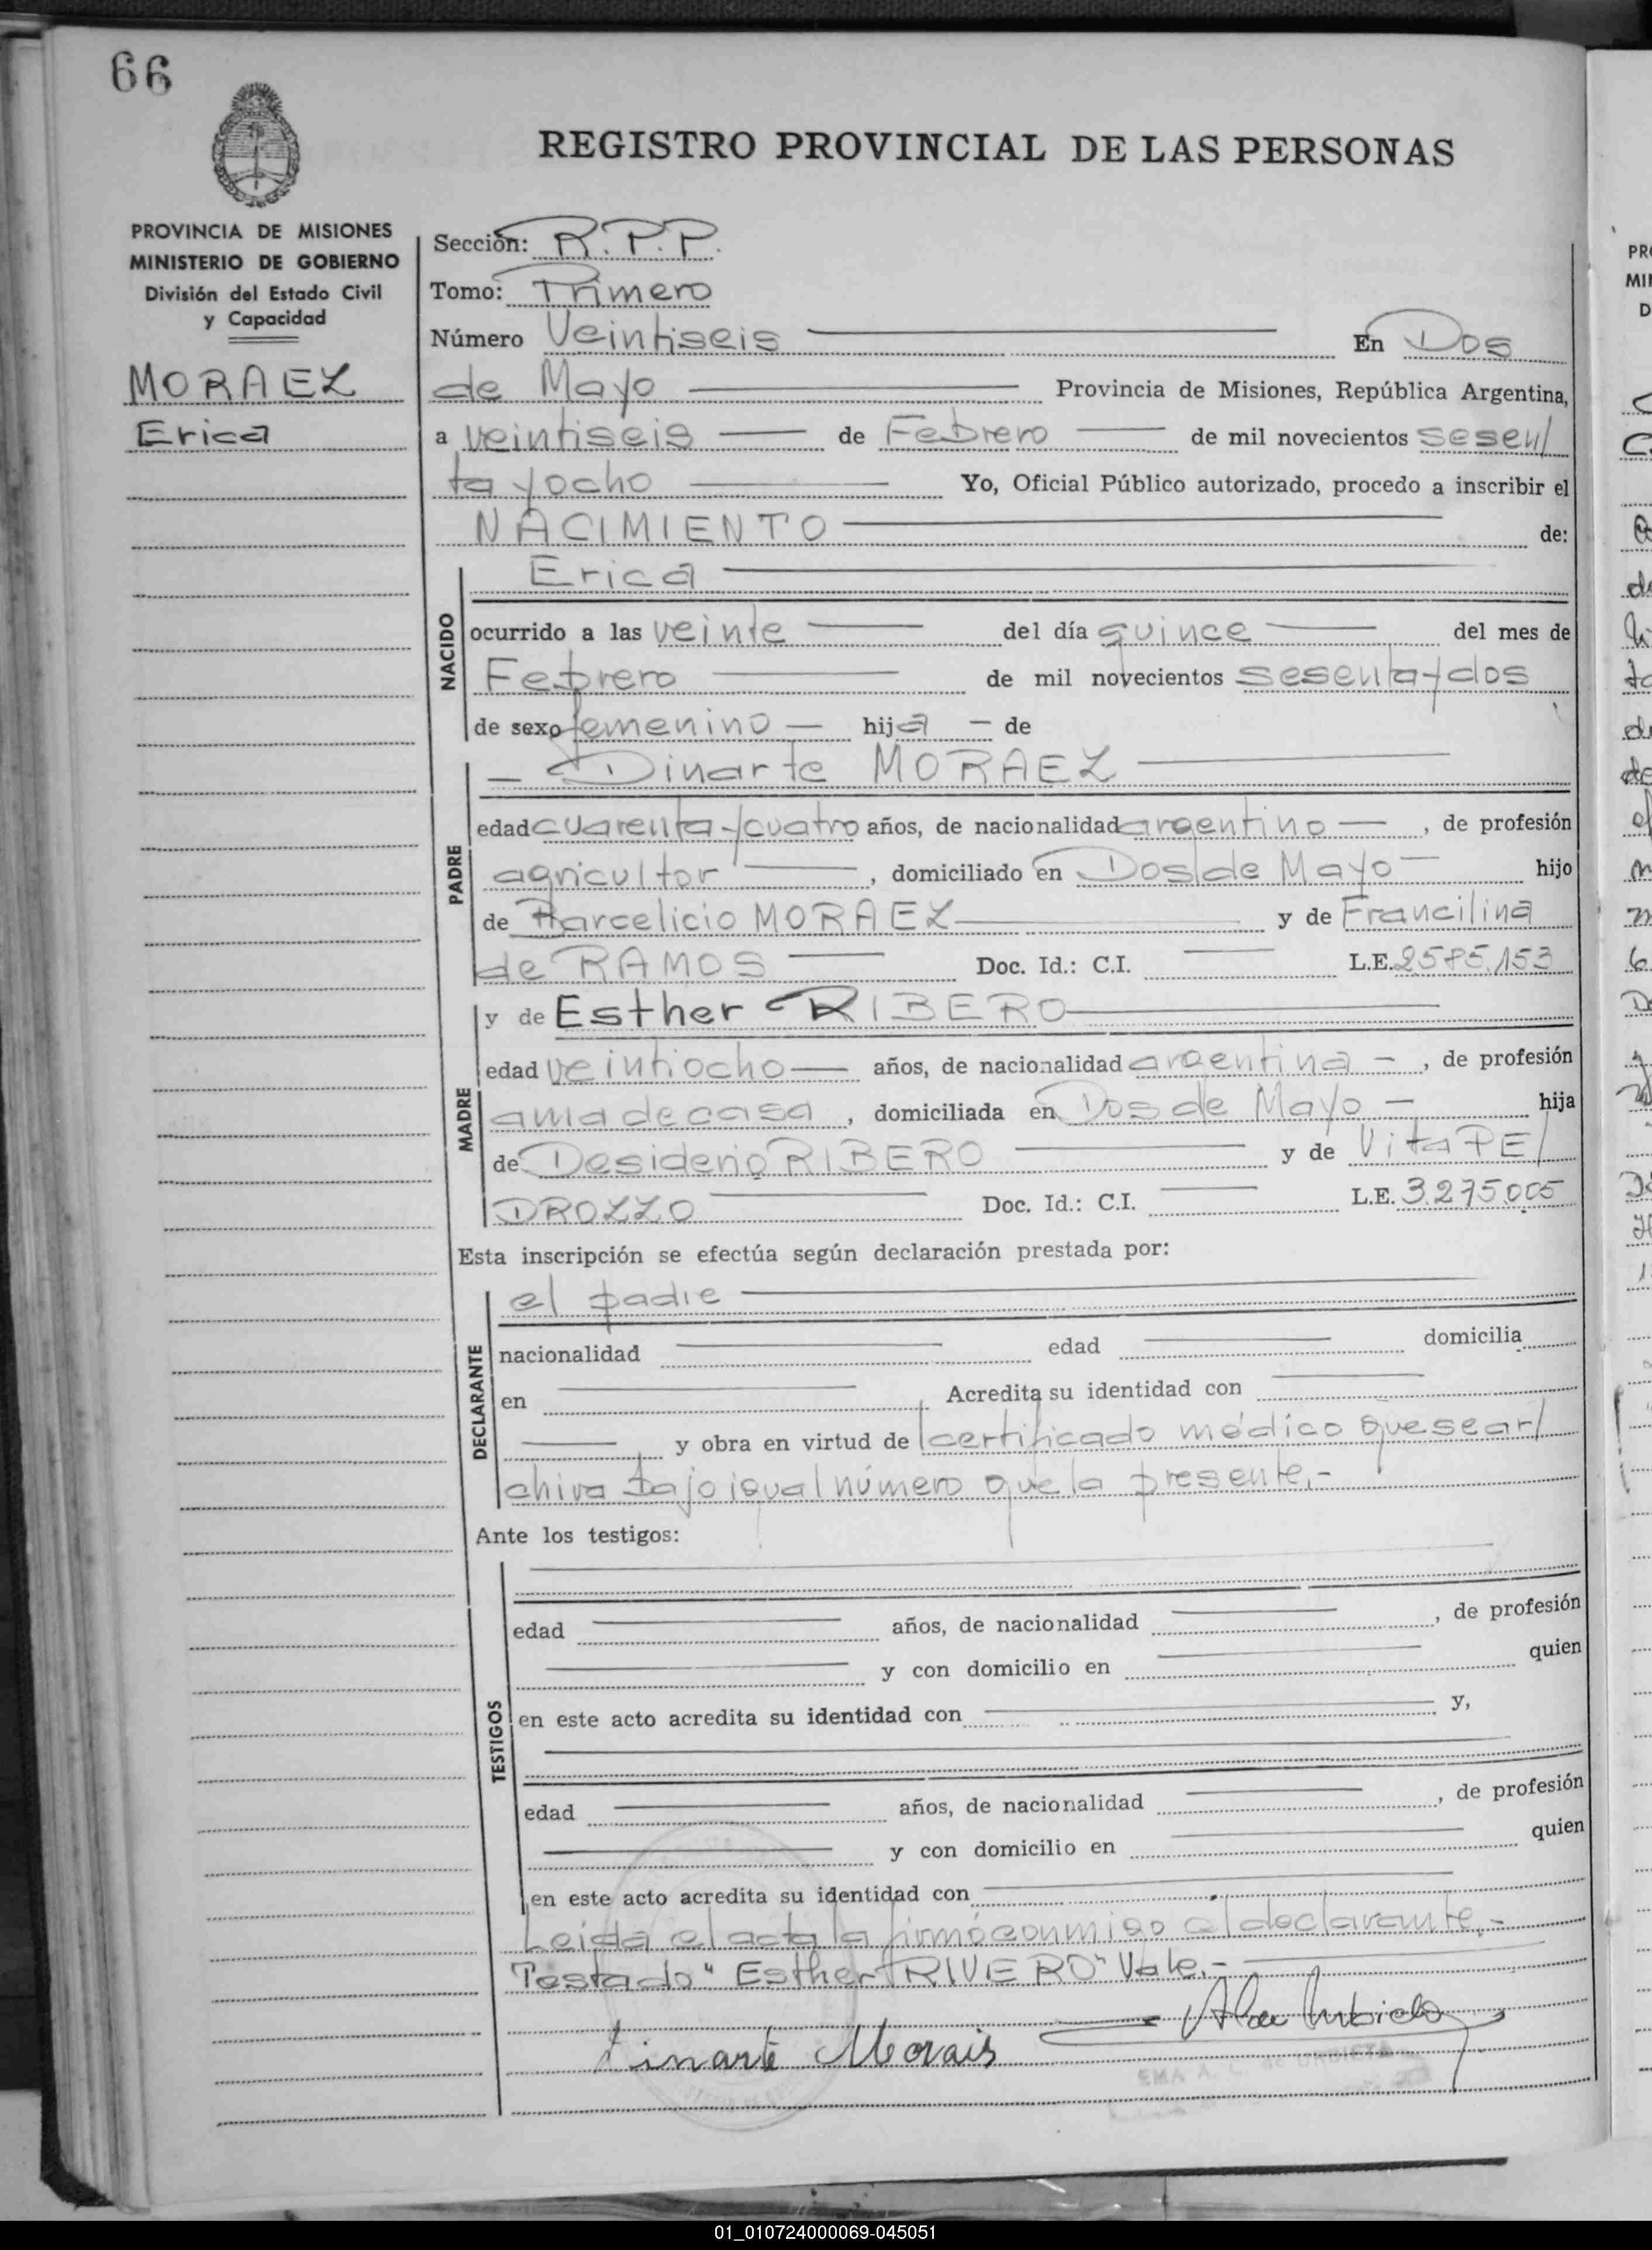 66
REGISTRO PROVINCIAL DE LAS PERSONAS
PROVINCIA DE MISIONES
MINISTERIO DE GOBIERNO
División del Estado Civil
y Capacidad
MORAEZ
Erica
Sección: R.P.P.
Tomo: Primero
Número Veintiseis En Dos
de Mayo Provincia de Misiones, República Argentina,
a veintiseis de Febrero de mil novecientos sesen/
ta y ocho Yo, Oficial Público autorizado, procedo a inscribir el
NACIMIENTO de:
NACIDO
Erica
ocurrido a las veinte del día quince del mes de
Febrero de mil novecientos sesenta y dos
de sexo femenino - hija - de
PADRE
- Dinarte MORAEZ
edad cuarenta y cuatro años, de nacionalidad argentino -, de profesión
agricultor, domiciliado en Dos de Mayo - hijo
de Marcelicio MORAEZ y de Francilina
de RAMOS Doc. Id.: C.I. L.E. 2585.153
MADRE
y de Esther RIBERO
edad veintiocho años, de nacionalidad argentina -, de profesión
ama de casa, domiciliada en Dos de Mayo - hija
de Desiderio RIBERO y de Vita PE/
DROZZO Doc. Id.: C.I. L.E. 3.275.005
Esta inscripción se efectúa según declaración prestada por:
DECLARANTE
el padre
nacionalidad edad domicilia
en Acredita su identidad con
y obra en virtud de certificado médico que se ar/
chiva bajo igual número que la presente.-
Ante los testigos:
TESTIGOS
edad años, de nacionalidad , de profesión
y con domicilio en quien
en este acto acredita su identidad con y,
edad años, de nacionalidad , de profesión
y con domicilio en quien
en este acto acredita su identidad con
Leida el acta la firmó conmigo el declarante.-
Testado "Esther RIVERO" Vale.-
Dinarte Morais
EMA A. C. de URBIETA
01_010724000069-045051